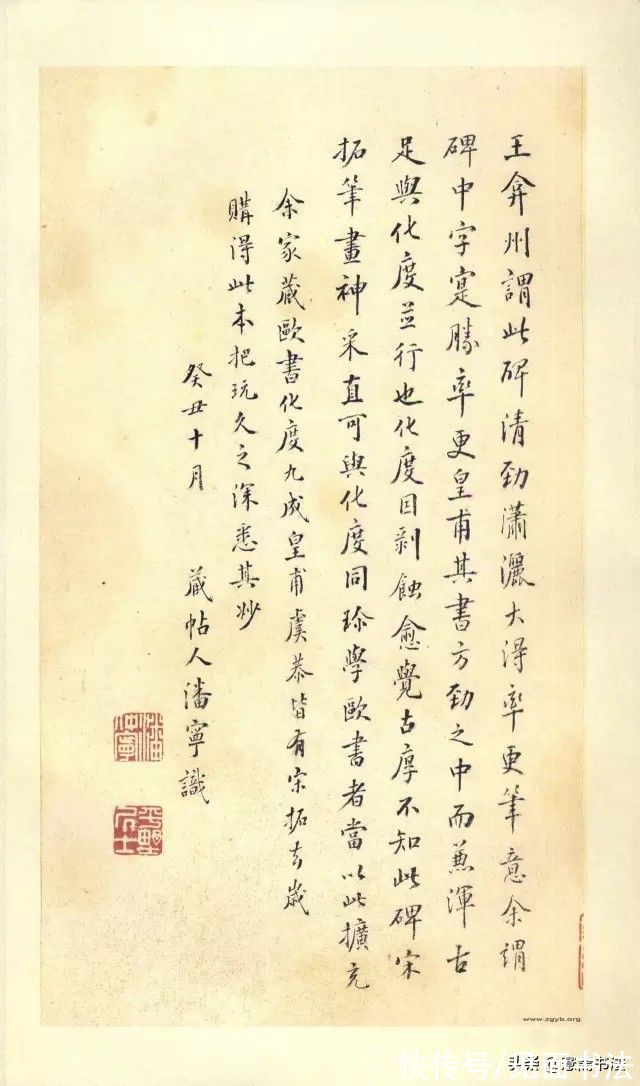 王弇州謂此碑清勁瀟灑大得率更筆意余謂
碑中字寔勝率更皇甫其書方勁之中而兼渾古
足與化度並行也化度因剥蝕愈覺古厚不知此碑宋
拓筆畫神采直可與化度同珍學歐書者當以此擴充
余家藏歐書化度九成皇甫虞恭皆有宋拓去歲
購得此本把玩久之深悉其妙
癸丑十月 藏帖人潘寧識
www.zgyb.org
快传号/